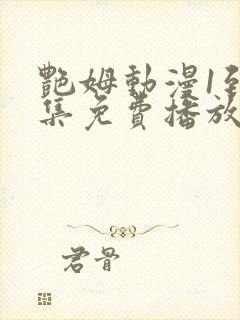 艷姆動漫1到
集免費播放
君骨